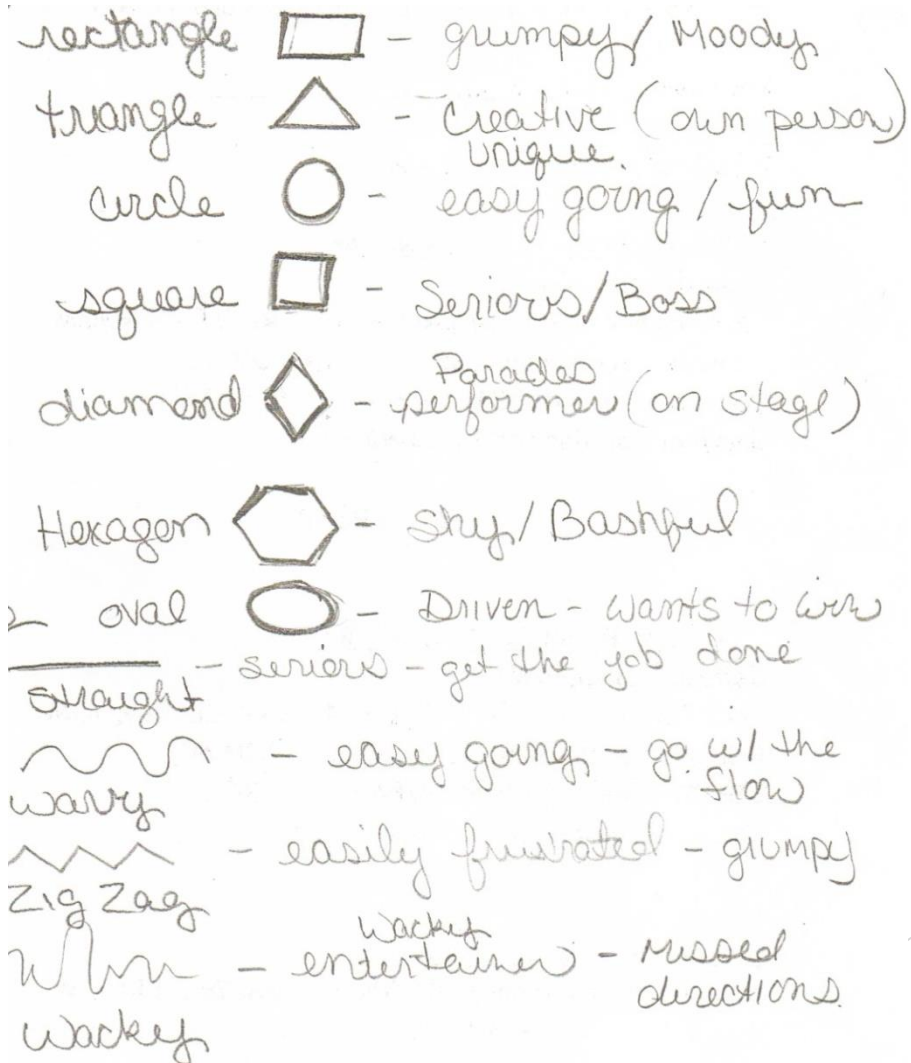 rectangle - grumpy/ Moody
triangle - creative (own person)
unique.
circle - easy going / fun
square - Seriors/Boss
Parades
diamond - performer (on stage)
Hexagon - Shy/ Bashful
oval - Driven - wants to win
- seriors - get the job done
straight
- easy going - go w/ the
flow
wavy
- easily frustrated - grumpy
Zig Zag
Wacky
- entertainer - missed
directions.
Wacky